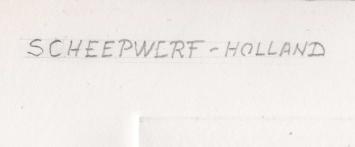 SCHEEPWERF - HOLLAND